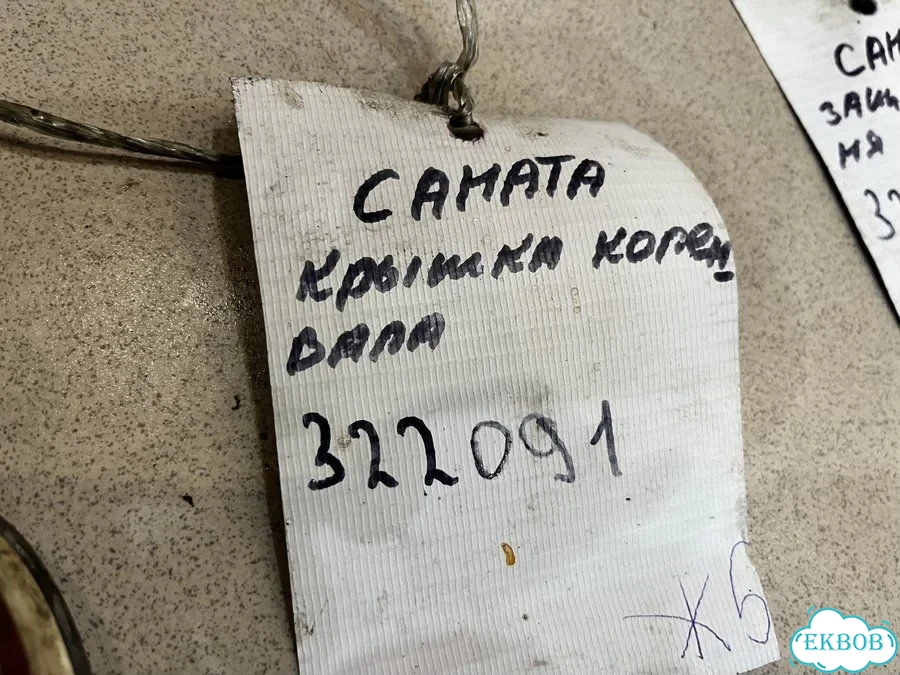 САМАТА
КРЫШКА КОРЕН
ВАЛА
322091
Ж5
САМ
ЗАЩ
НЯ
32
EKBOB